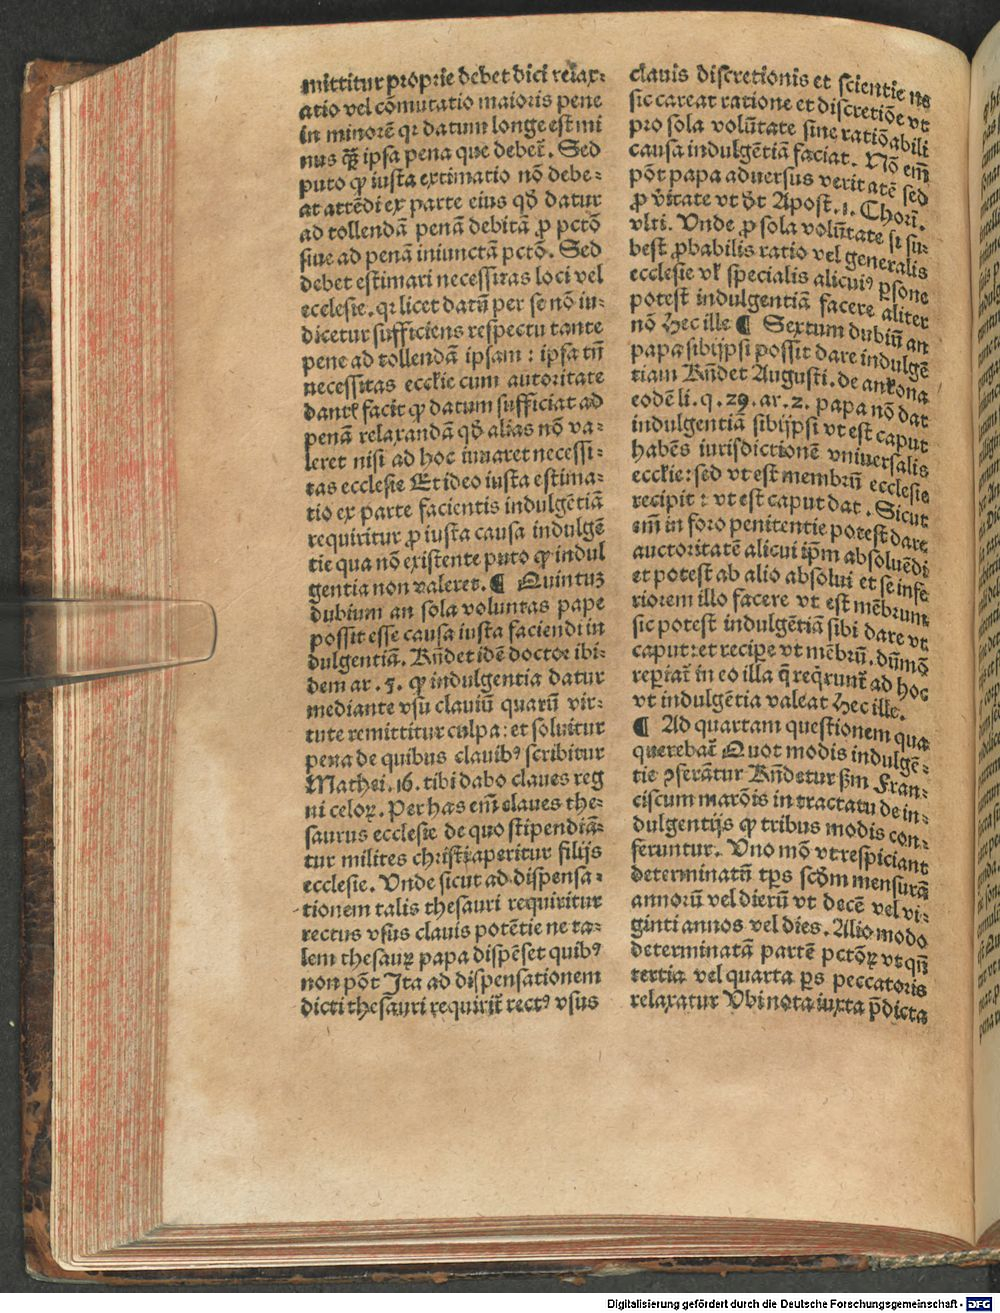 mittitur proprie debet dici relax⸗
atio vel cõmutatio maioris pene
in minorẽ qꝛ datum longe est mi
nus qᷓꝫ ipsa pena que debet̃. Sed
puto ꝙ iusta extimatio nõ debe⸗
at attẽdi ex parte eius qḋ datur
ad tollendã penã debitã ꝓ pctõ
siue ad penã iniunctã pctõ. Sed
debet estimari necessitas loci vel
ecclesie. qꝛ licet datũ per se nõ iu⸗
dicetur sufficiens respectu tante
pene ad tollendã ipsam : ipsa tñ
necessitas eccl̃ie cum autoritate
dantꝭ facit ꝙ datum sufficiat ad
penã relaxandã qḋ alias nõ va⸗
leret nisi ad hoc iuuaret necessi⸗
tas ecclesie Et ideo iusta estima⸗
tio ex parte facientis indulgẽtiã
requiritur ꝓ iusta causa indulgẽ
tie qua nõ existente puto ꝙ indul
gentia non valeret. ¶ Quintuꝫ
dubium an sola voluntas pape
possit esse causa iusta faciendi in
dulgentiã. Rñdet idẽ doctor ibi⸗
dem ar. 5. ꝙ indulgentia datur
mediante vsu clauiũ quarũ vir⸗
tute remittitur culpa: et soluitur
pena de quibus clauibꝰ scribitur
Mathei. 16. tibi dabo claues reg
ni celoꝝ. Per has em̃ claues the⸗
saurus ecclesie de quo stipendiã⸗
tur milites christi aperitur filijs
ecclesie. Vnde sicut ad dispensa⸗
tionem talis thesauri requiritur
rectus vsus clauis potẽtie ne ta⸗
lem thesauꝝ papa dispẽset quibꝰ
non põt Ita ad dispensationem
dicti thesauri requirit̃ rectꝰ vsus
clauis discretionis et scientie ne
sic careat ratione et discretiõe vt
pro sola volũtate sine ratiõabili
causa indulgẽtiã faciat. Nõ em̃
põt papa aduersus veritatẽ sed
ꝓ ṽitate vt ḣt Apost̃. 1. Choꝛ̃.
vlti. Vnde ꝓ sola volũtate si su⸗
best ꝓbabilis ratio vel generalis
ecclesie vl̃ specialis alicuiꝰ ꝑsone
potest indulgentiã facere aliter
nõ Hec ille ¶ Sextum dubiũ an
papa sibijpsi possit dare indulgẽ
tiam Rñdet Augusti. de ankona
eodẽ li. q. 29. ar. 2. papa nõ dat
indulgentiã sibijpsi vt est caput
habẽs iurisdictionẽ vniuersalis
eccl̃ie: sed vt est membrũ ecclesie
recipit : vt est caput dat. Sicut
em̃ in foro penitentie potest dare
auctoritatẽ alicui ip̃m absoluẽdi
et potest ab alio absolui et se infe
riorem illo facere vt est mẽbrum
sic potest indulgẽtiã sibi dare vt
caput: et recipere vt mẽbrũ. dũmõ
reꝑiat̃ in eo illa q̃ reqͥrunt̃ ad hoc
vt indulgẽtia valeat Hec ille.
¶ Ad quartam questionem qua
querebat̃ Quot modis indulgẽ⸗
tie ꝯferãtur Rñdetur ẜm Fran⸗
ciscum marõis in tractatu de in⸗
dulgentijs ꝙ tribus modis con⸗
feruntur. Vno mõ vt respiciant
determinatũ tp̃s scḋm mensurã
annorũ vel dierũ vt decẽ vel vi⸗
ginti annos vel dies. Alio modo
determinatã partẽ pctõꝝ vt qñ
tertia vel quarta ps̃ peccatoris
relaxatur Vbi nota iuxta p̃dicta
Digitalisierung gefördert durch die Deutsche Forschungsgemeinschaft - DFG